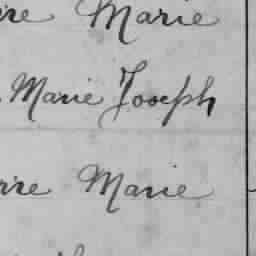 re Marie
Marie Joseph
rre Marie